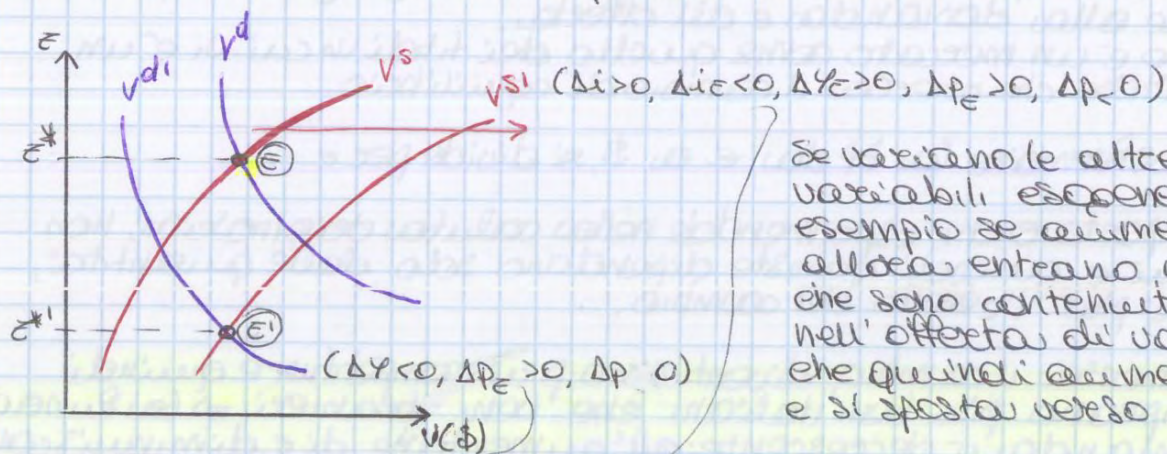 E
V^d
V^d'
V^s
V^s' (Δi>0, Δi_E<0, ΔY_E>0, Δp_E>0, Δp<0)
E*
E
se variano le altre
variabili esogene
esempio se aume
allora entrano
che sono contenut
nell'offerta di va
che quindi aume
e si sposta verso
E*'
E'
(ΔY<0, Δp_E>0, Δp 0)
V($)